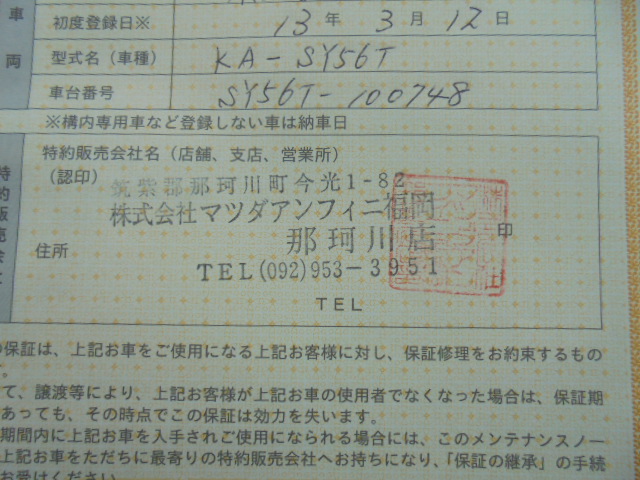 車両
初度登録日※ 13年 3月 12日
型式名（車種） KA-SY56T
車台番号 SY56T-100748
※構内専用車など登録しない車は納車日
特約販売会社名（店舗、支店、営業所）
（認印）
筑紫郡那珂川町今光1-82
株式会社マツダアンフィニ福岡
那珂川店
印
住所
TEL(092)953-3951
TEL
の保証は、上記お車をご使用になる上記お客様に対し、保証修理をお約束するもの
。
て、譲渡等により、上記お客様が上記お車の使用者でなくなった場合は、保証期
あっても、その時点でこの保証は効力を失います。
期間内に上記お車を入手されご使用になられる場合には、このメンテナンスノー
上記お車をただちに最寄りの特約販売会社へお持ちになり、「保証の継承」の手続
お受けください。